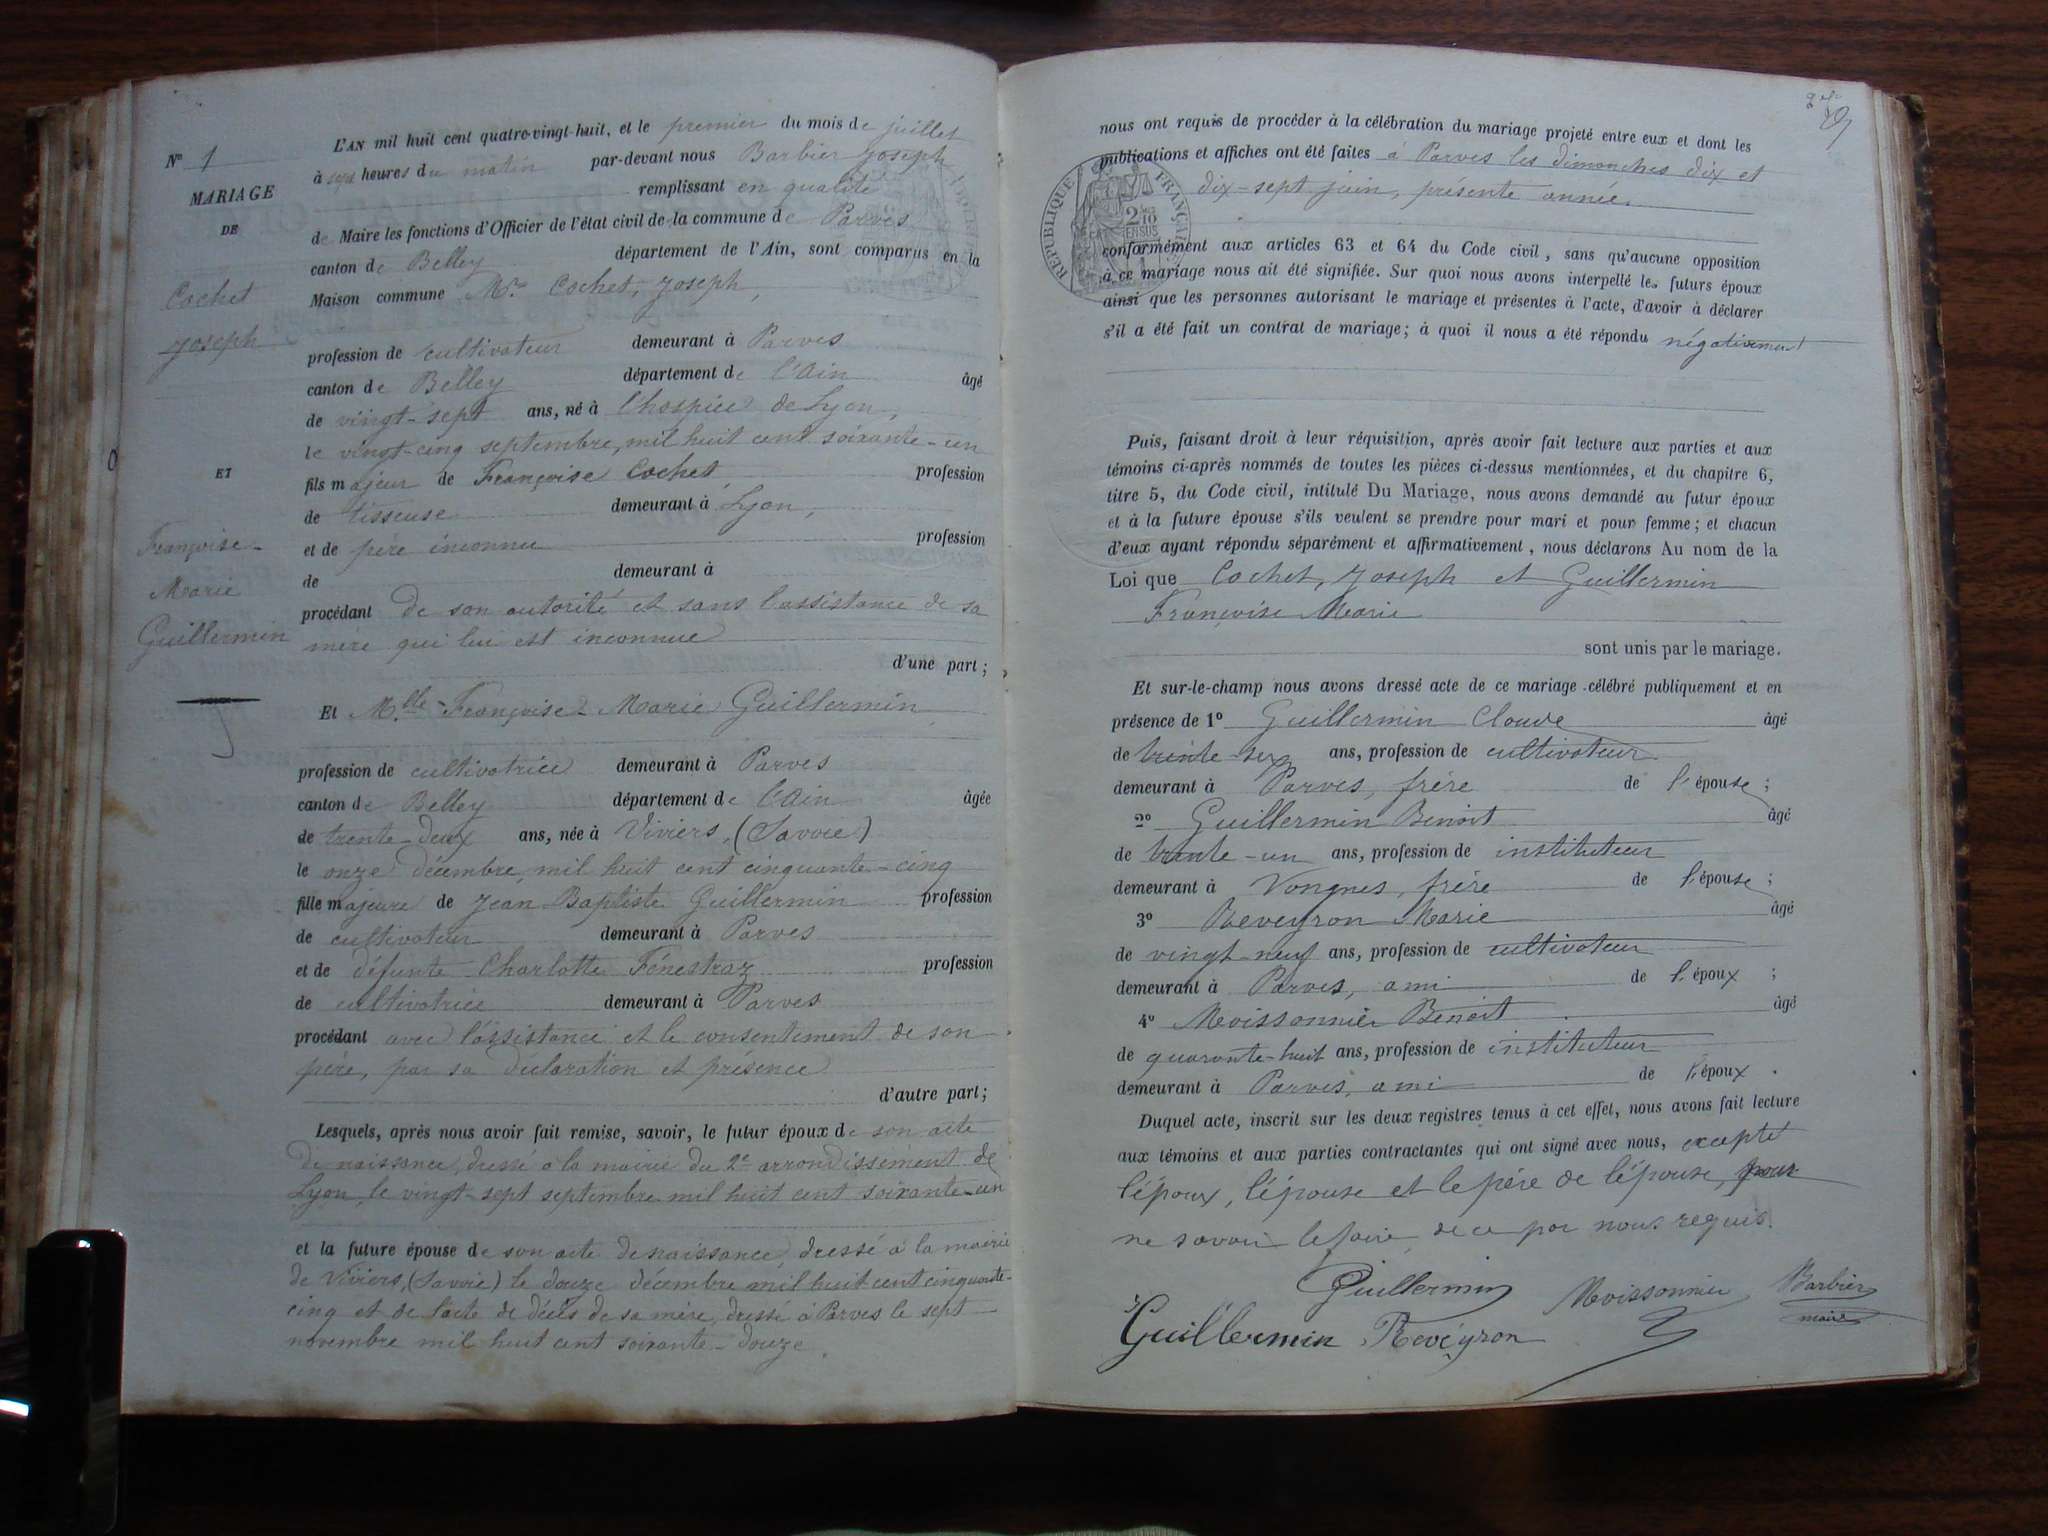 L'AN mil huit cent quatre-vingt-huit, et le premier du mois de juillet
N° 1
à sept heures du matin par-devant nous Barbier Joseph
MARIAGE
remplissant en qualité
DE
de Maire les fonctions d'Officier de l'état civil de la commune de Parves
canton de Belley département de l'Ain, sont comparus en la
Cochet
Joseph
Maison commune Mr. Cochet, Joseph,
profession de cultivateur demeurant à Parves
canton de Belley département de l'Ain âgé
de vingt-sept ans, né à l'hospice de Lyon,
le vingt-cinq septembre, mil huit cent soixante-un
ET
fils majeur de Françoise Cochet, profession
de tisseuse demeurant à Lyon,
Françoise-
Marie
Guillermin
et de père inconnu profession
de demeurant à
procédant de son autorité et sans l'assistance de sa
mère qui lui est inconnue
d'une part;
Et Mlle Françoise-Marie Guillermin
profession de cultivatrice demeurant à Parves
canton de Belley département de l'Ain âgée
de trente-deux ans, née à Viviers, (Savoie)
le onze décembre, mil huit cent cinquante-cinq
fille majeure de Jean-Baptiste Guillermin profession
de cultivateur demeurant à Parves
et de défunte Charlotte Fénestraz profession
de cultivatrice demeurant à Parves
procédant avec l'assistance et le consentement de son
père, par sa déclaration et présence
d'autre part;
Lesquels, après nous avoir fait remise, savoir, le futur époux de son acte
de naissance, dressé à la mairie du 2e arrondissement de
Lyon, le vingt-sept septembre mil huit cent soixante-un
et la future épouse de son acte de naissance, dressé à la mairie
de Viviers, (Savoie) le douze décembre mil huit cent cinquante-
cinq et de l'acte de décès de sa mère, dressé à Parves le sept
novembre mil huit cent soixante-douze.
nous ont requis de procéder à la célébration du mariage projeté entre eux et dont les
publications et affiches ont été faites à Parves les dimanches dix et
dix-sept juin, présente année.
RÉPUBLIQUE FRANÇAISE
2 MES
10
EN SUS
conformément aux articles 63 et 64 du Code civil, sans qu'aucune opposition
à ce mariage nous ait été signifiée. Sur quoi nous avons interpellé les futurs époux
ainsi que les personnes autorisant le mariage et présentes à l'acte, d'avoir à déclarer
s'il a été fait un contrat de mariage; à quoi il nous a été répondu négativement
Puis, faisant droit à leur réquisition, après avoir fait lecture aux parties et aux
témoins ci-après nommés de toutes les pièces ci-dessus mentionnées, et du chapitre 6,
titre 5, du Code civil, intitulé Du Mariage, nous avons demandé au futur époux
et à la future épouse s'ils veulent se prendre pour mari et pour femme; et chacun
d'eux ayant répondu séparément et affirmativement, nous déclarons Au nom de la
Loi que Cochet, Joseph et Guillermin
Françoise Marie
sont unis par le mariage.
Et sur-le-champ nous avons dressé acte de ce mariage célébré publiquement et en
présence de 1° Guillermin Claude âgé
de trente-six ans, profession de cultivateur
demeurant à Parves, frère de l'épouse;
2° Guillermin Benoit âgé
de trente-un ans, profession de instituteur
demeurant à Vongnes, frère de l'épouse;
3° Reveyron Marie âgé
de vingt-neuf ans, profession de cultivateur
demeurant à Parves, ami de l'époux;
4° Moissonnier Benoit âgé
de quarante-huit ans, profession de instituteur
demeurant à Parves, ami de l'époux.
Duquel acte, inscrit sur les deux registres tenus à cet effet, nous avons fait lecture
aux témoins et aux parties contractantes qui ont signé avec nous, excepté
l'époux, l'épouse et le père de l'épouse, pour
ne savoir le faire, de ce par nous requis.
Guillermin Moissonnier Barbier
maire
Guillermin Reveyron